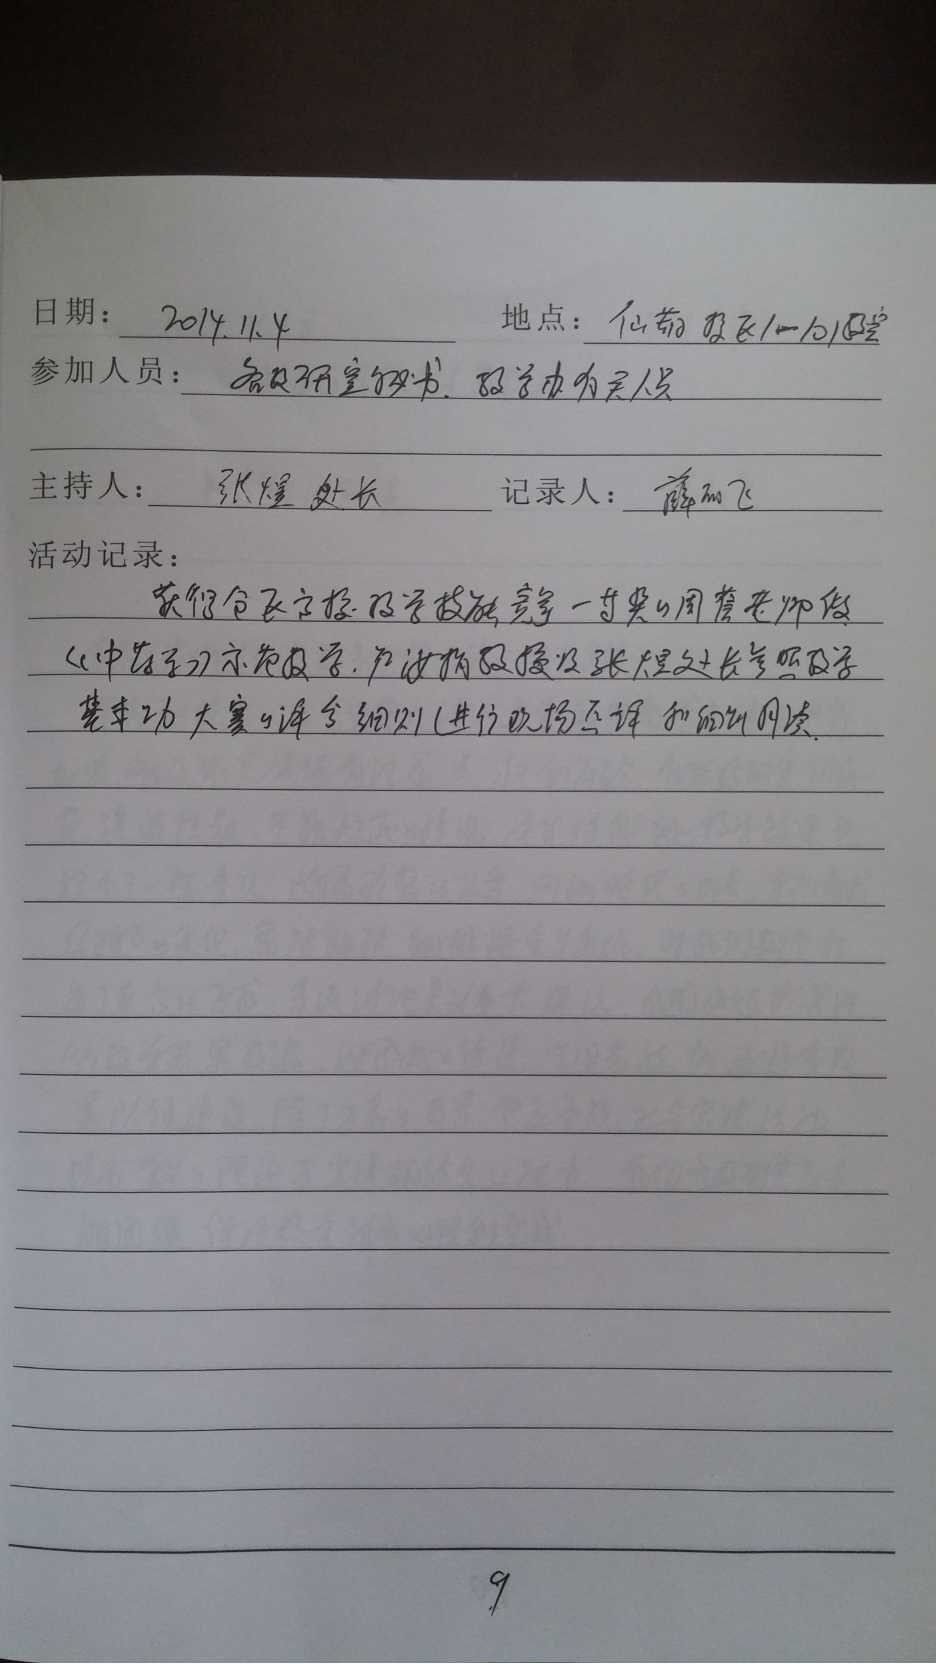 日期： 2014.11.4 地点： 仙葫校区1-101教室
参加人员： 各教研室秘书、教学办有关人员
主持人： 张煜处长 记录人： 薛飞
活动记录：
获得全区高校教学技能竞赛一等奖的周蔓老师做
《中药学》示范教学.卢汝梅教授及张煜处长参照教学
基本功大赛的评分细则，进行现场点评和细则阅读.
9